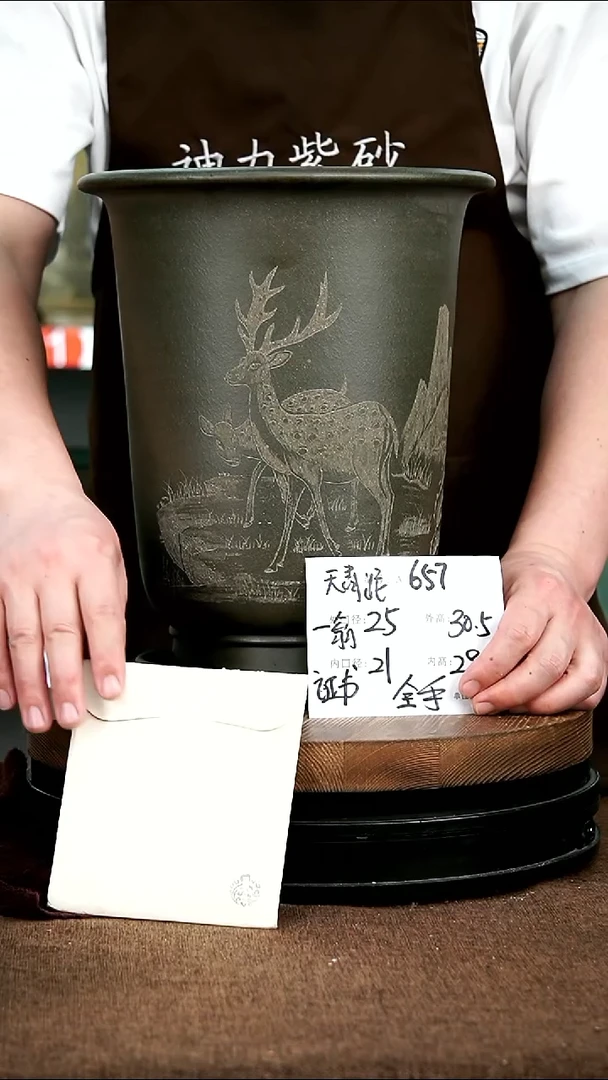 神力紫砂
天青泥 657
一翁 外口径: 25 外高: 30.5
内口径: 21 内高: 29
证书 全手